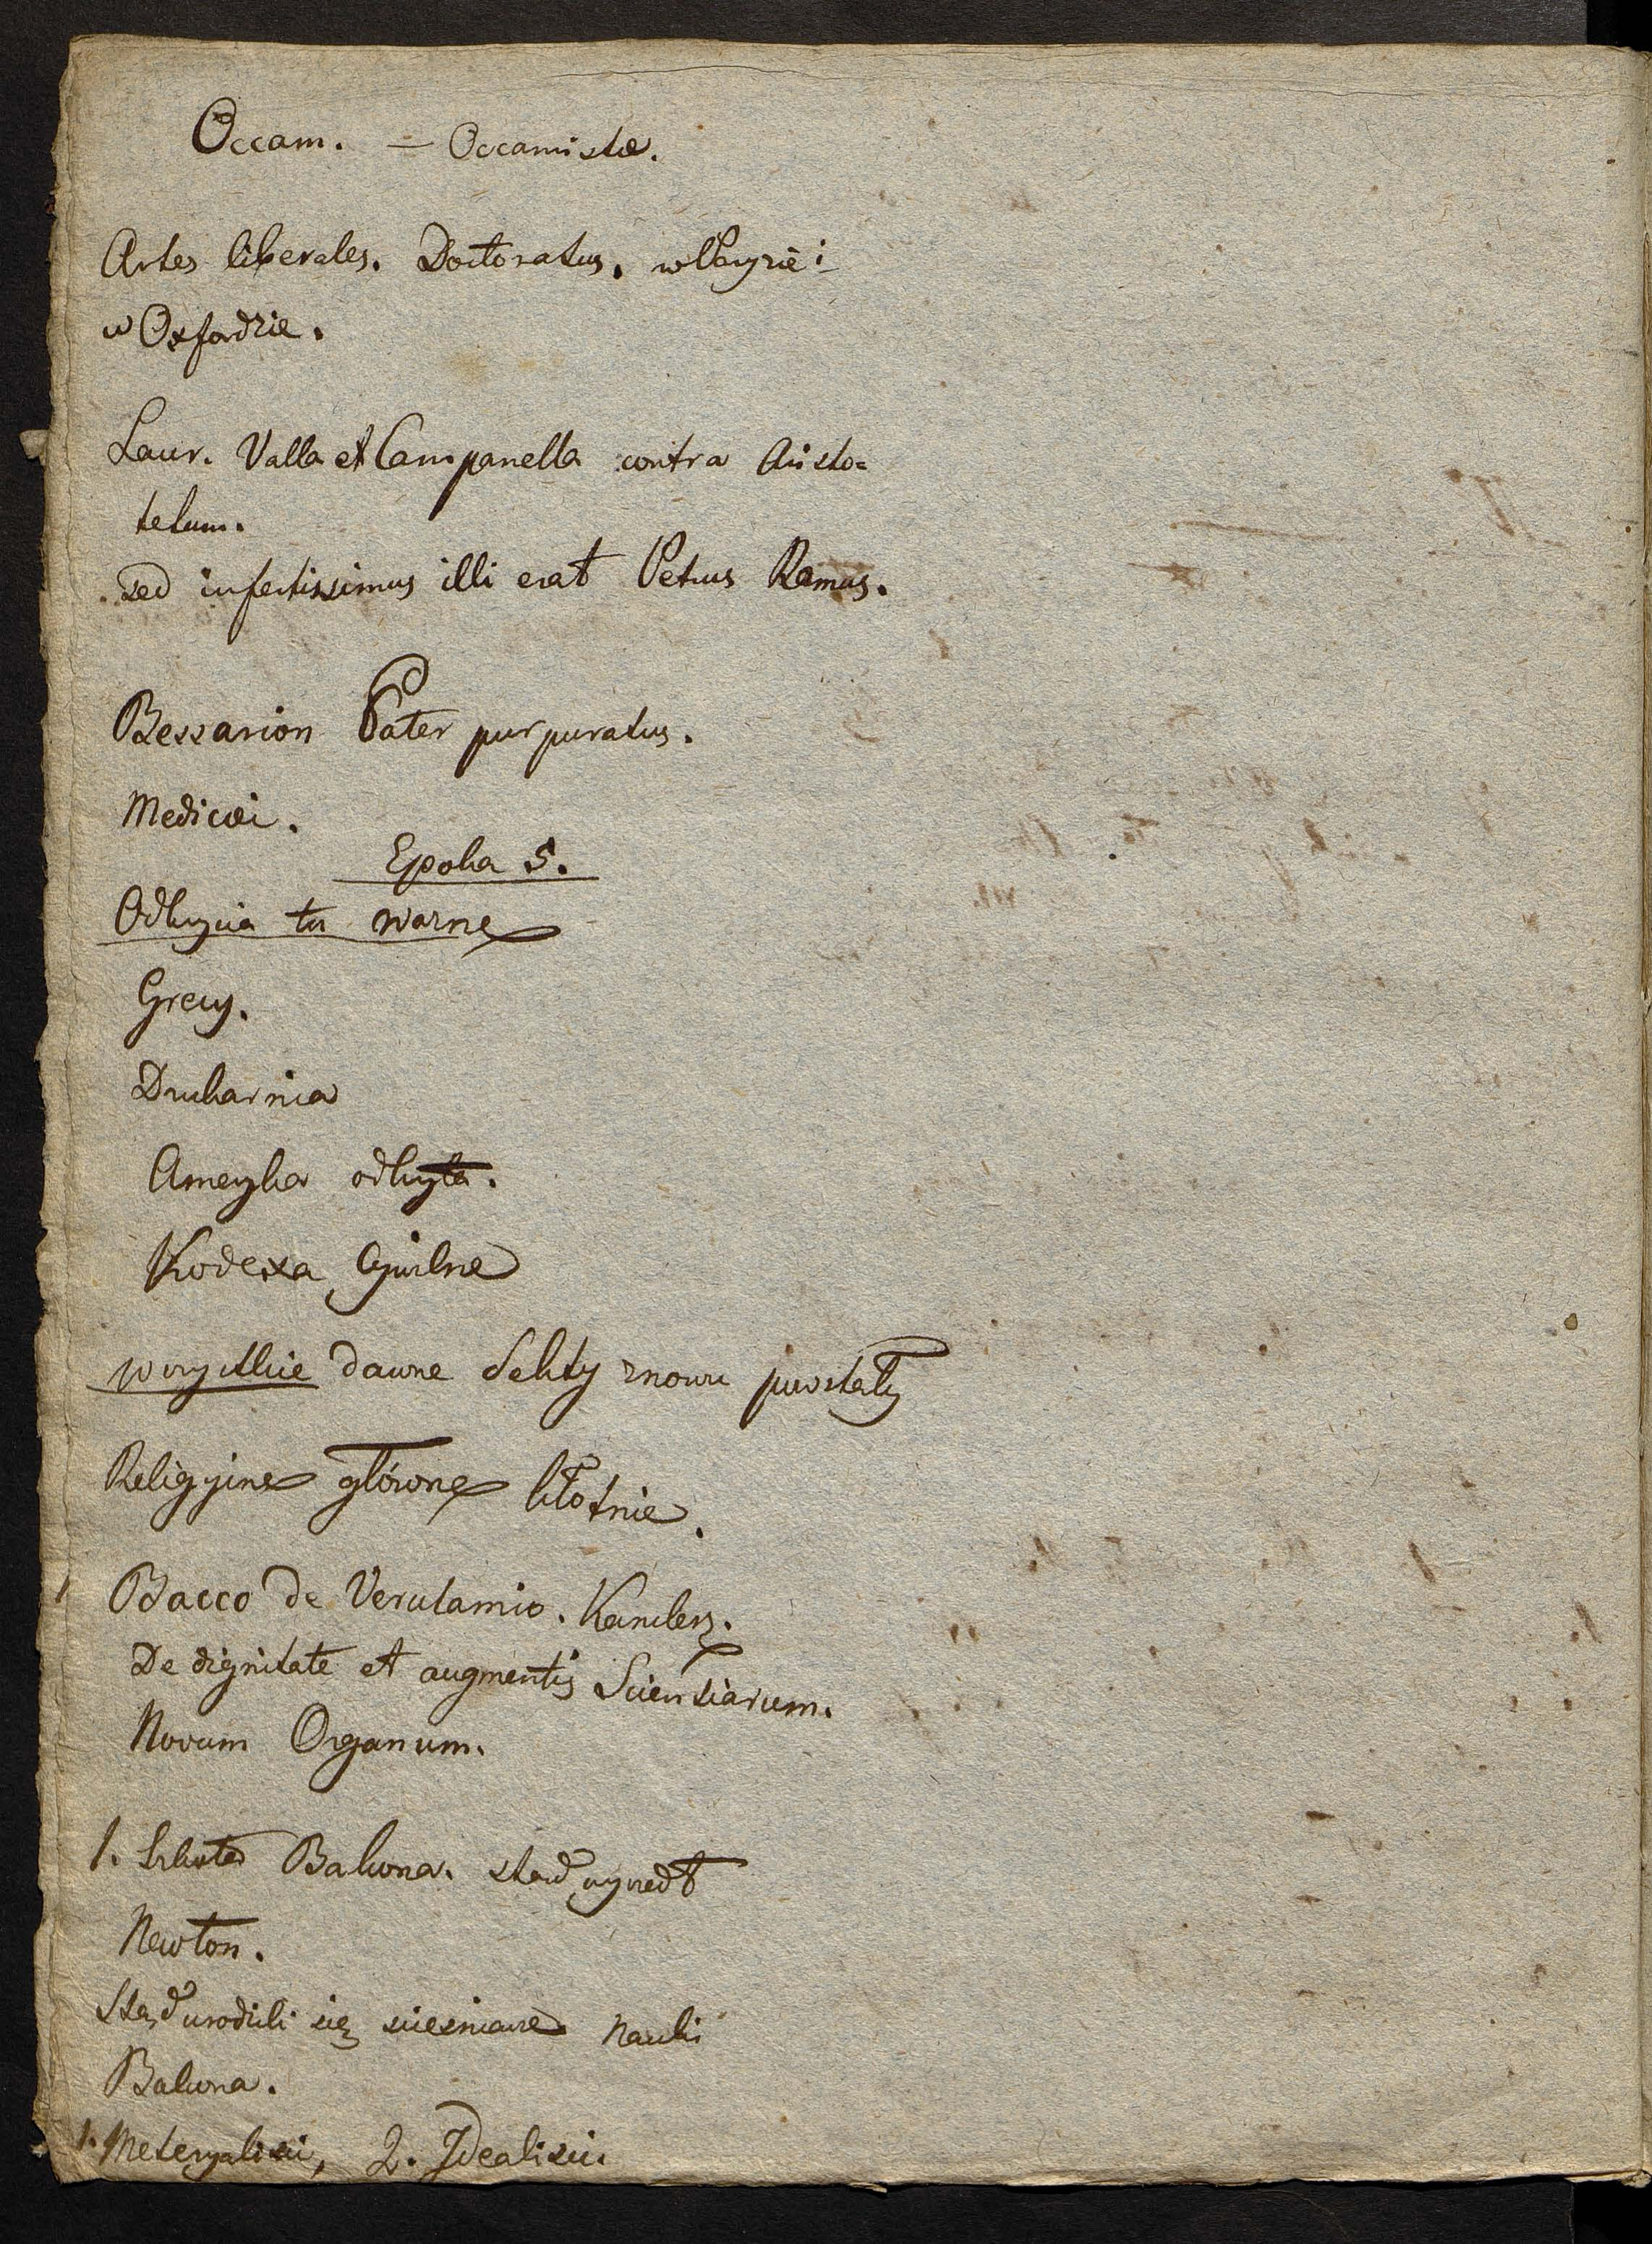 Occam. — Occamistæ.
Artes liberales. Doctoratus. w Paryżie i
w Oxfordzie.
Laur. Valla et Campanella contra Aristo=
telum.
sed infestissimus illi erat Petrus Ramus.
Bessarion Pater purpuratus.
Medicæi.
Epoka 5.
Odkrycia tu ważne
Grecy.
Drukarnia
Ameryka odkryta.
Kodexa Cywilne
wszystkie dawne Sekty znowu powstały
Religyine główne kłótnie.
Bacco de Verulamio. Kanclerz.
De dignitate et augmentis Scientiarum.
Novum Organum.
1. Szkoła Bakona. stąd wyszedł
Newton.
Stąd urodzili się nauki
Bakona.
1. Materyaliści, 2. Idealiści.